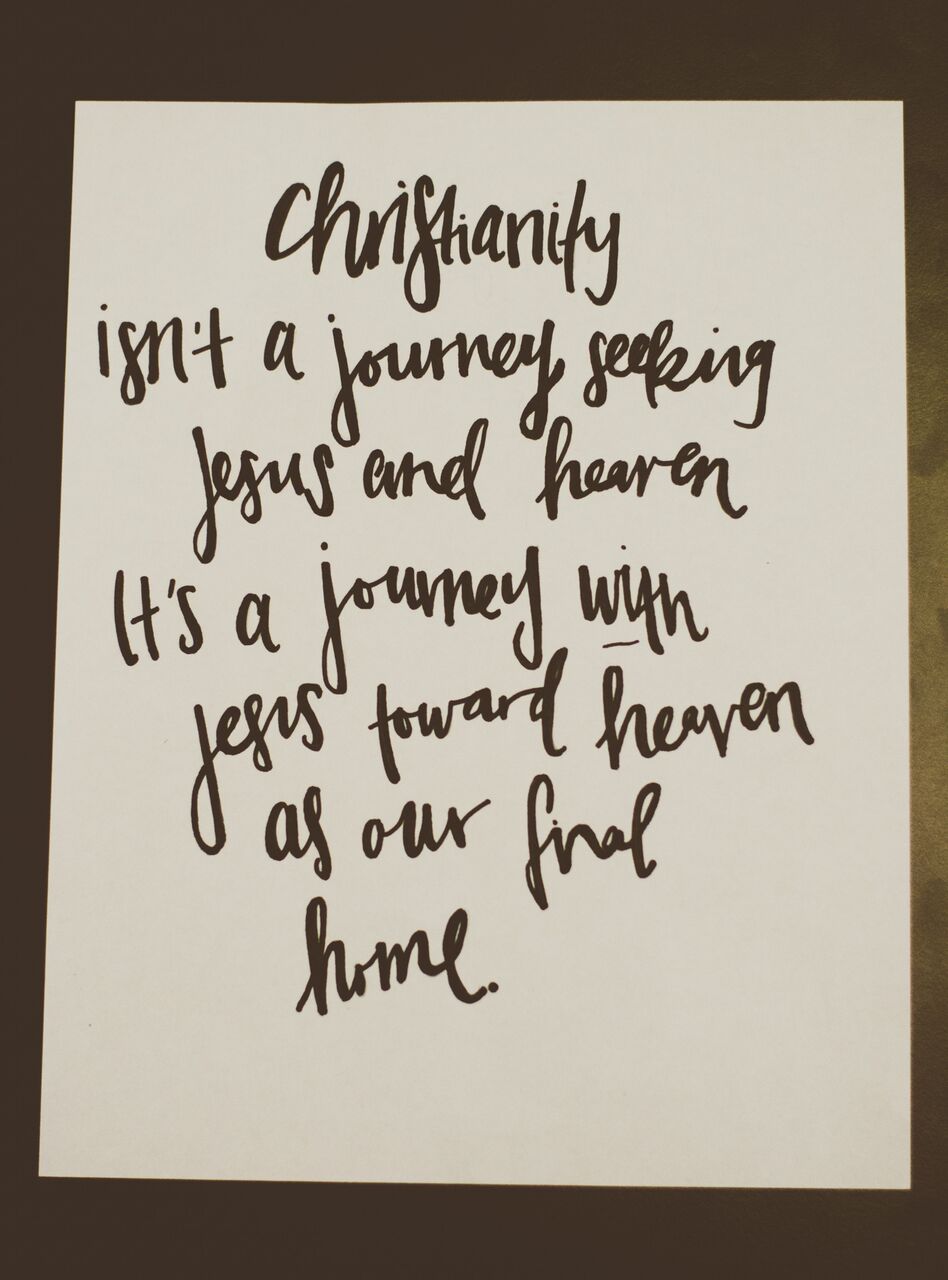 Christianity
isn't a journey seeking
Jesus and heaven
It's a journey with
Jesus toward heaven
as our final
home.